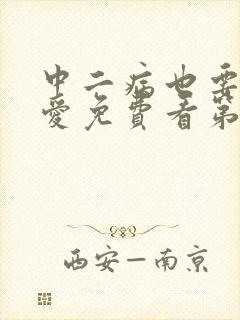 中二病也要
爱免費看第
西安—南京